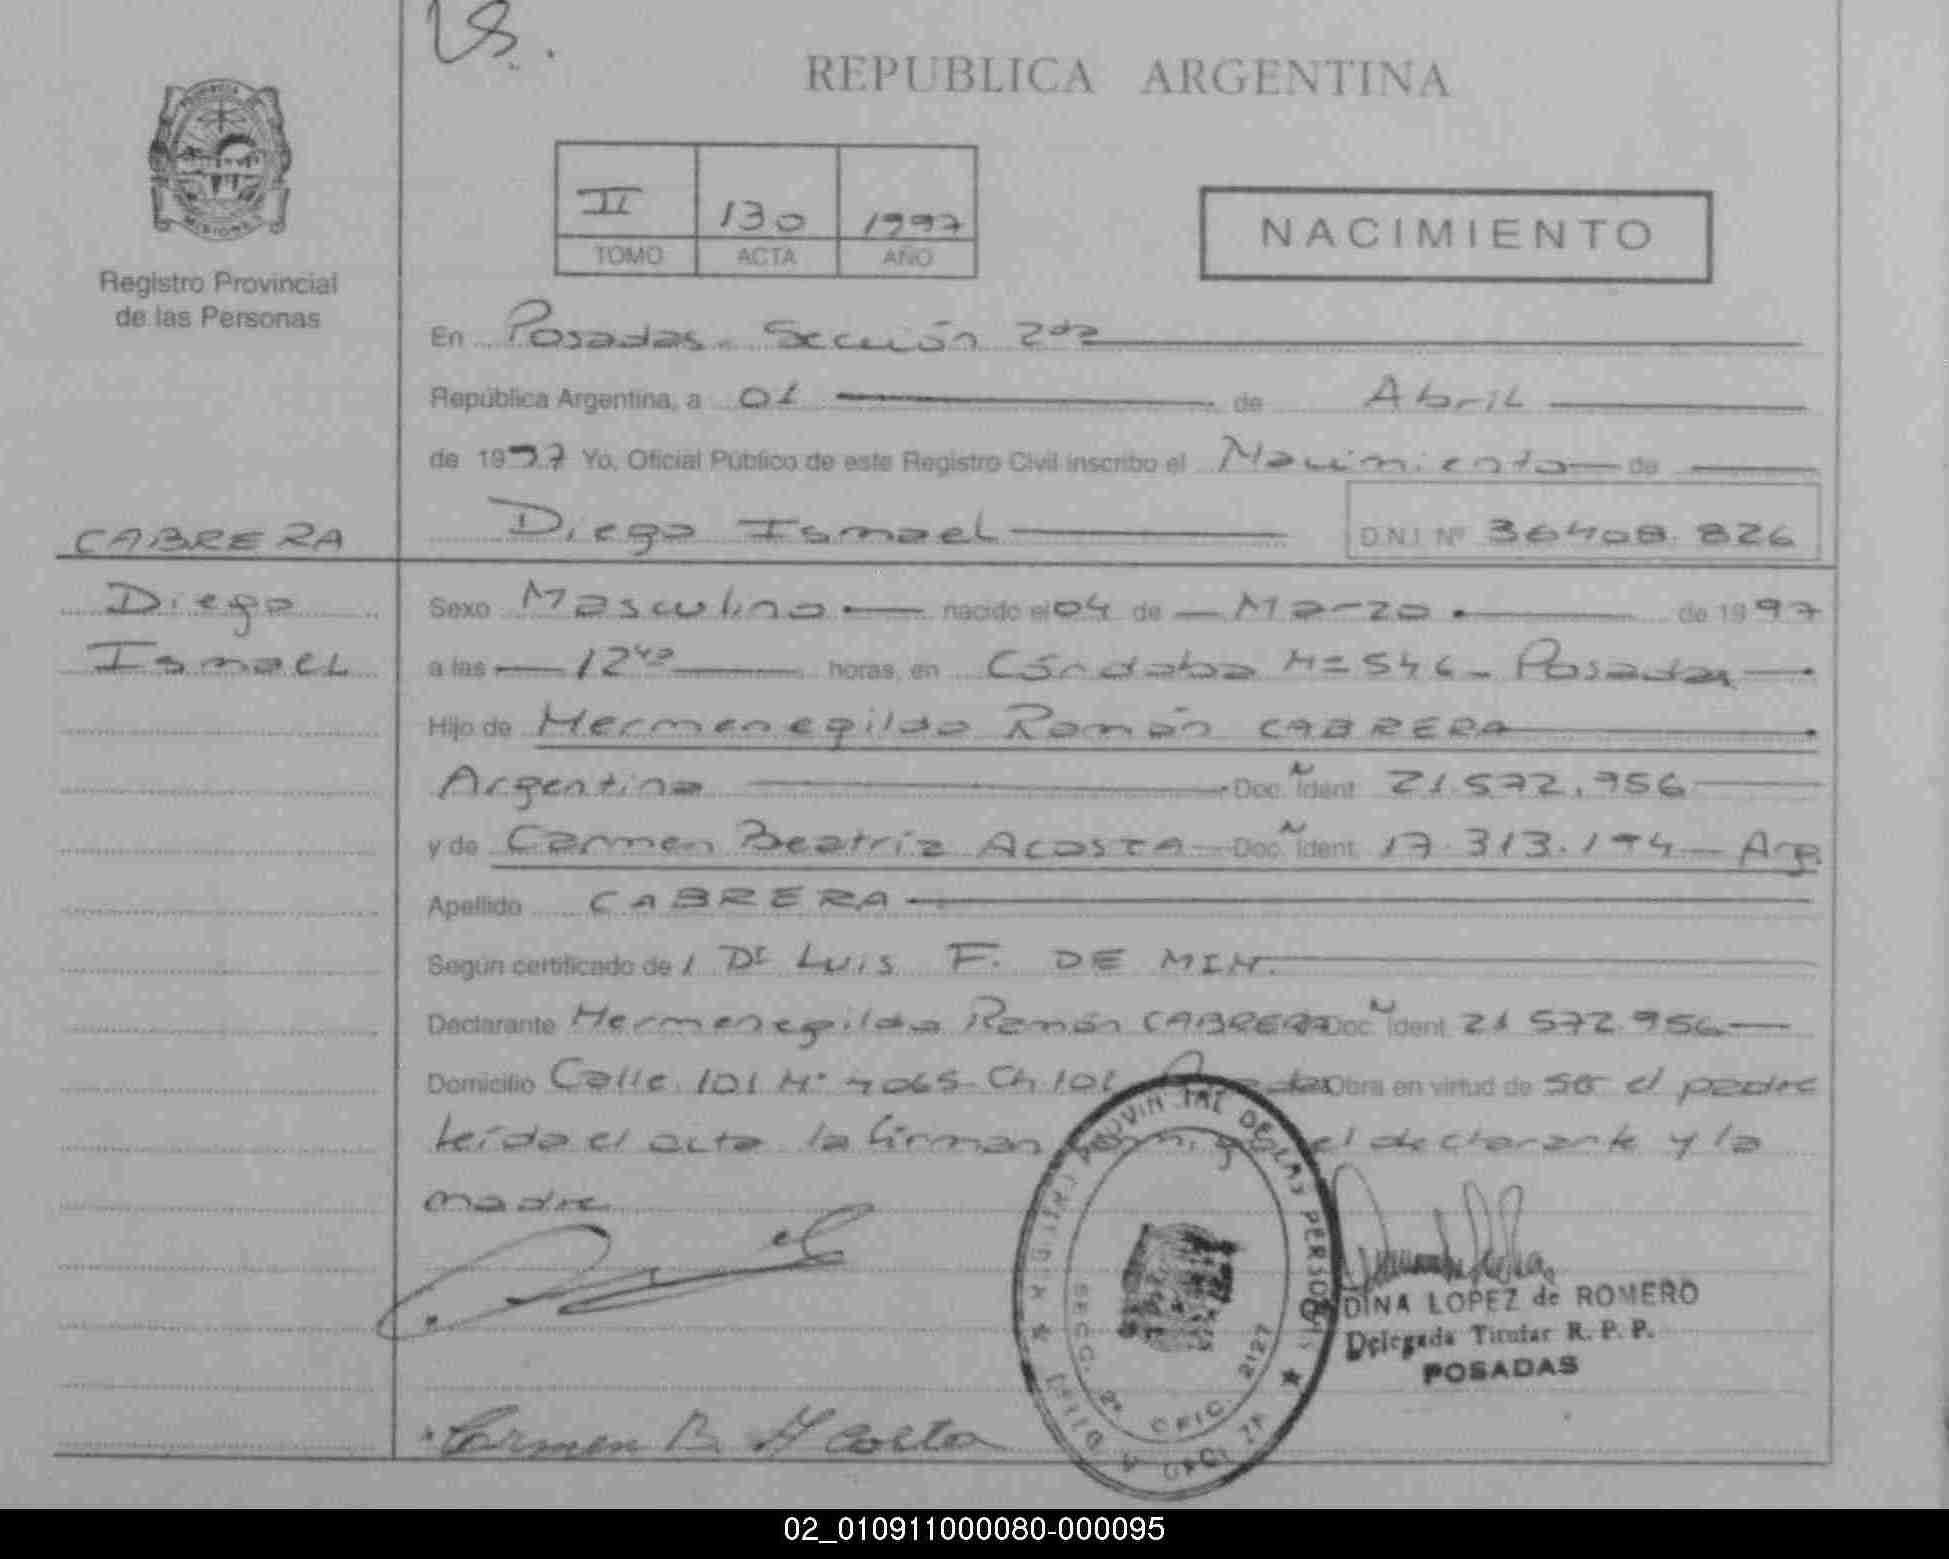 REPUBLICA ARGENTINA
II 130 1997
TOMO ACTA AÑO
NACIMIENTO
Registro Provincial
de las Personas
CABRERA
Diego
Ismael
En Posadas - Sección 2da
República Argentina, a 01 de Abril
de 1997 Yo, Oficial Público de este Registro Civil inscribo el Nacimiento de
Diego Ismael D.N.I. Nº 36408.826
Sexo Masculino nacido el 04 de Marzo de 1997
a las 12 horas, en Córdoba Nº 546 - Posadas
Hijo de Hermenegildo Román CABRERA
Argentino Doc. Ident. 21.572.956
y de Carmen Beatríz ACOSTA Doc. Ident. 17.313.194 - Arg.
Apellido CABRERA
Según certificado de Dr LUIS F. DE MIN.
Declarante Hermenegildo Román CABRERA Doc. Ident. 21 572.956
Domicilio Calle 101 Nº 7065 - Ch 101 Posadas Obra en virtud de ser el padre
leída el acta la firman conmigo el declarante y la
madre
REGISTRO PROVINCIAL DE LAS PERSONAS
SECC. 2º OFIC. 2127
DINA LOPEZ de ROMERO
Delegada Titular R. P. P.
POSADAS
Carmen B. Acosta
02_010911000080-000095